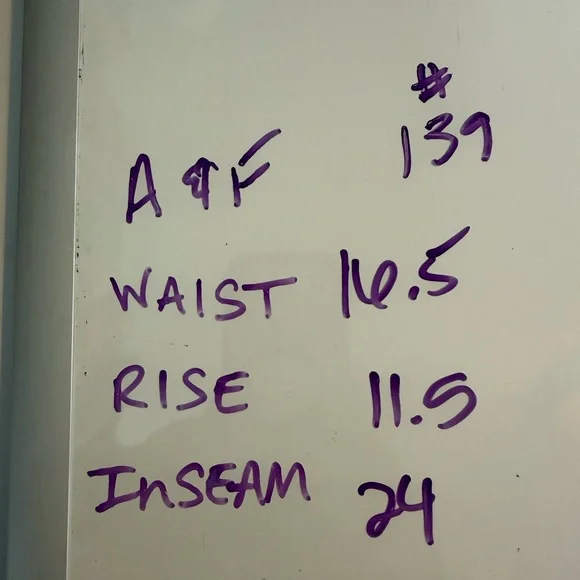 #
139
A & F
WAIST 16.5
RISE 11.5
InSEAM 24